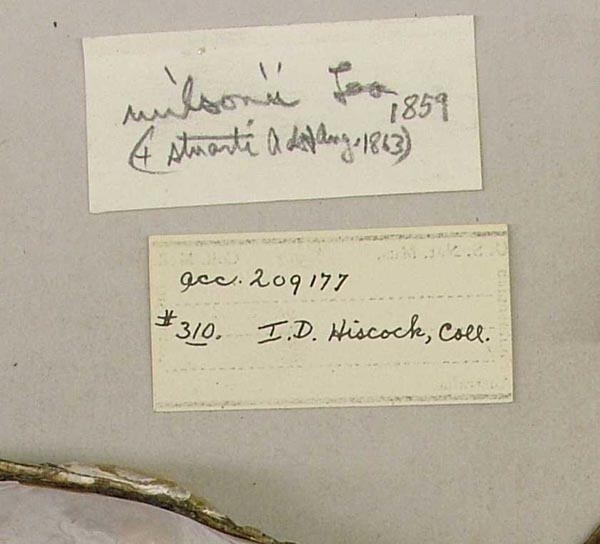 wilsonii Lea 1859
(+ stuarti A d & Ang. 1863)
acc. 209177
#310. I.D. Hiscock, Coll.